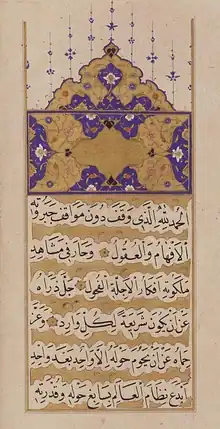 الحمد لله الذی وقف دون مواقف جبروته
الافهام والعقول وحار فی مشاهد
ملکوته افکار الاجلة الفحول جل ذراه
عن ان یکون شریعة لکل وارد وعز
حماه عن ان یحوم حوله الا واحد بعد واحد
ابدع نظام العالم ببدایع حوله وقدرته